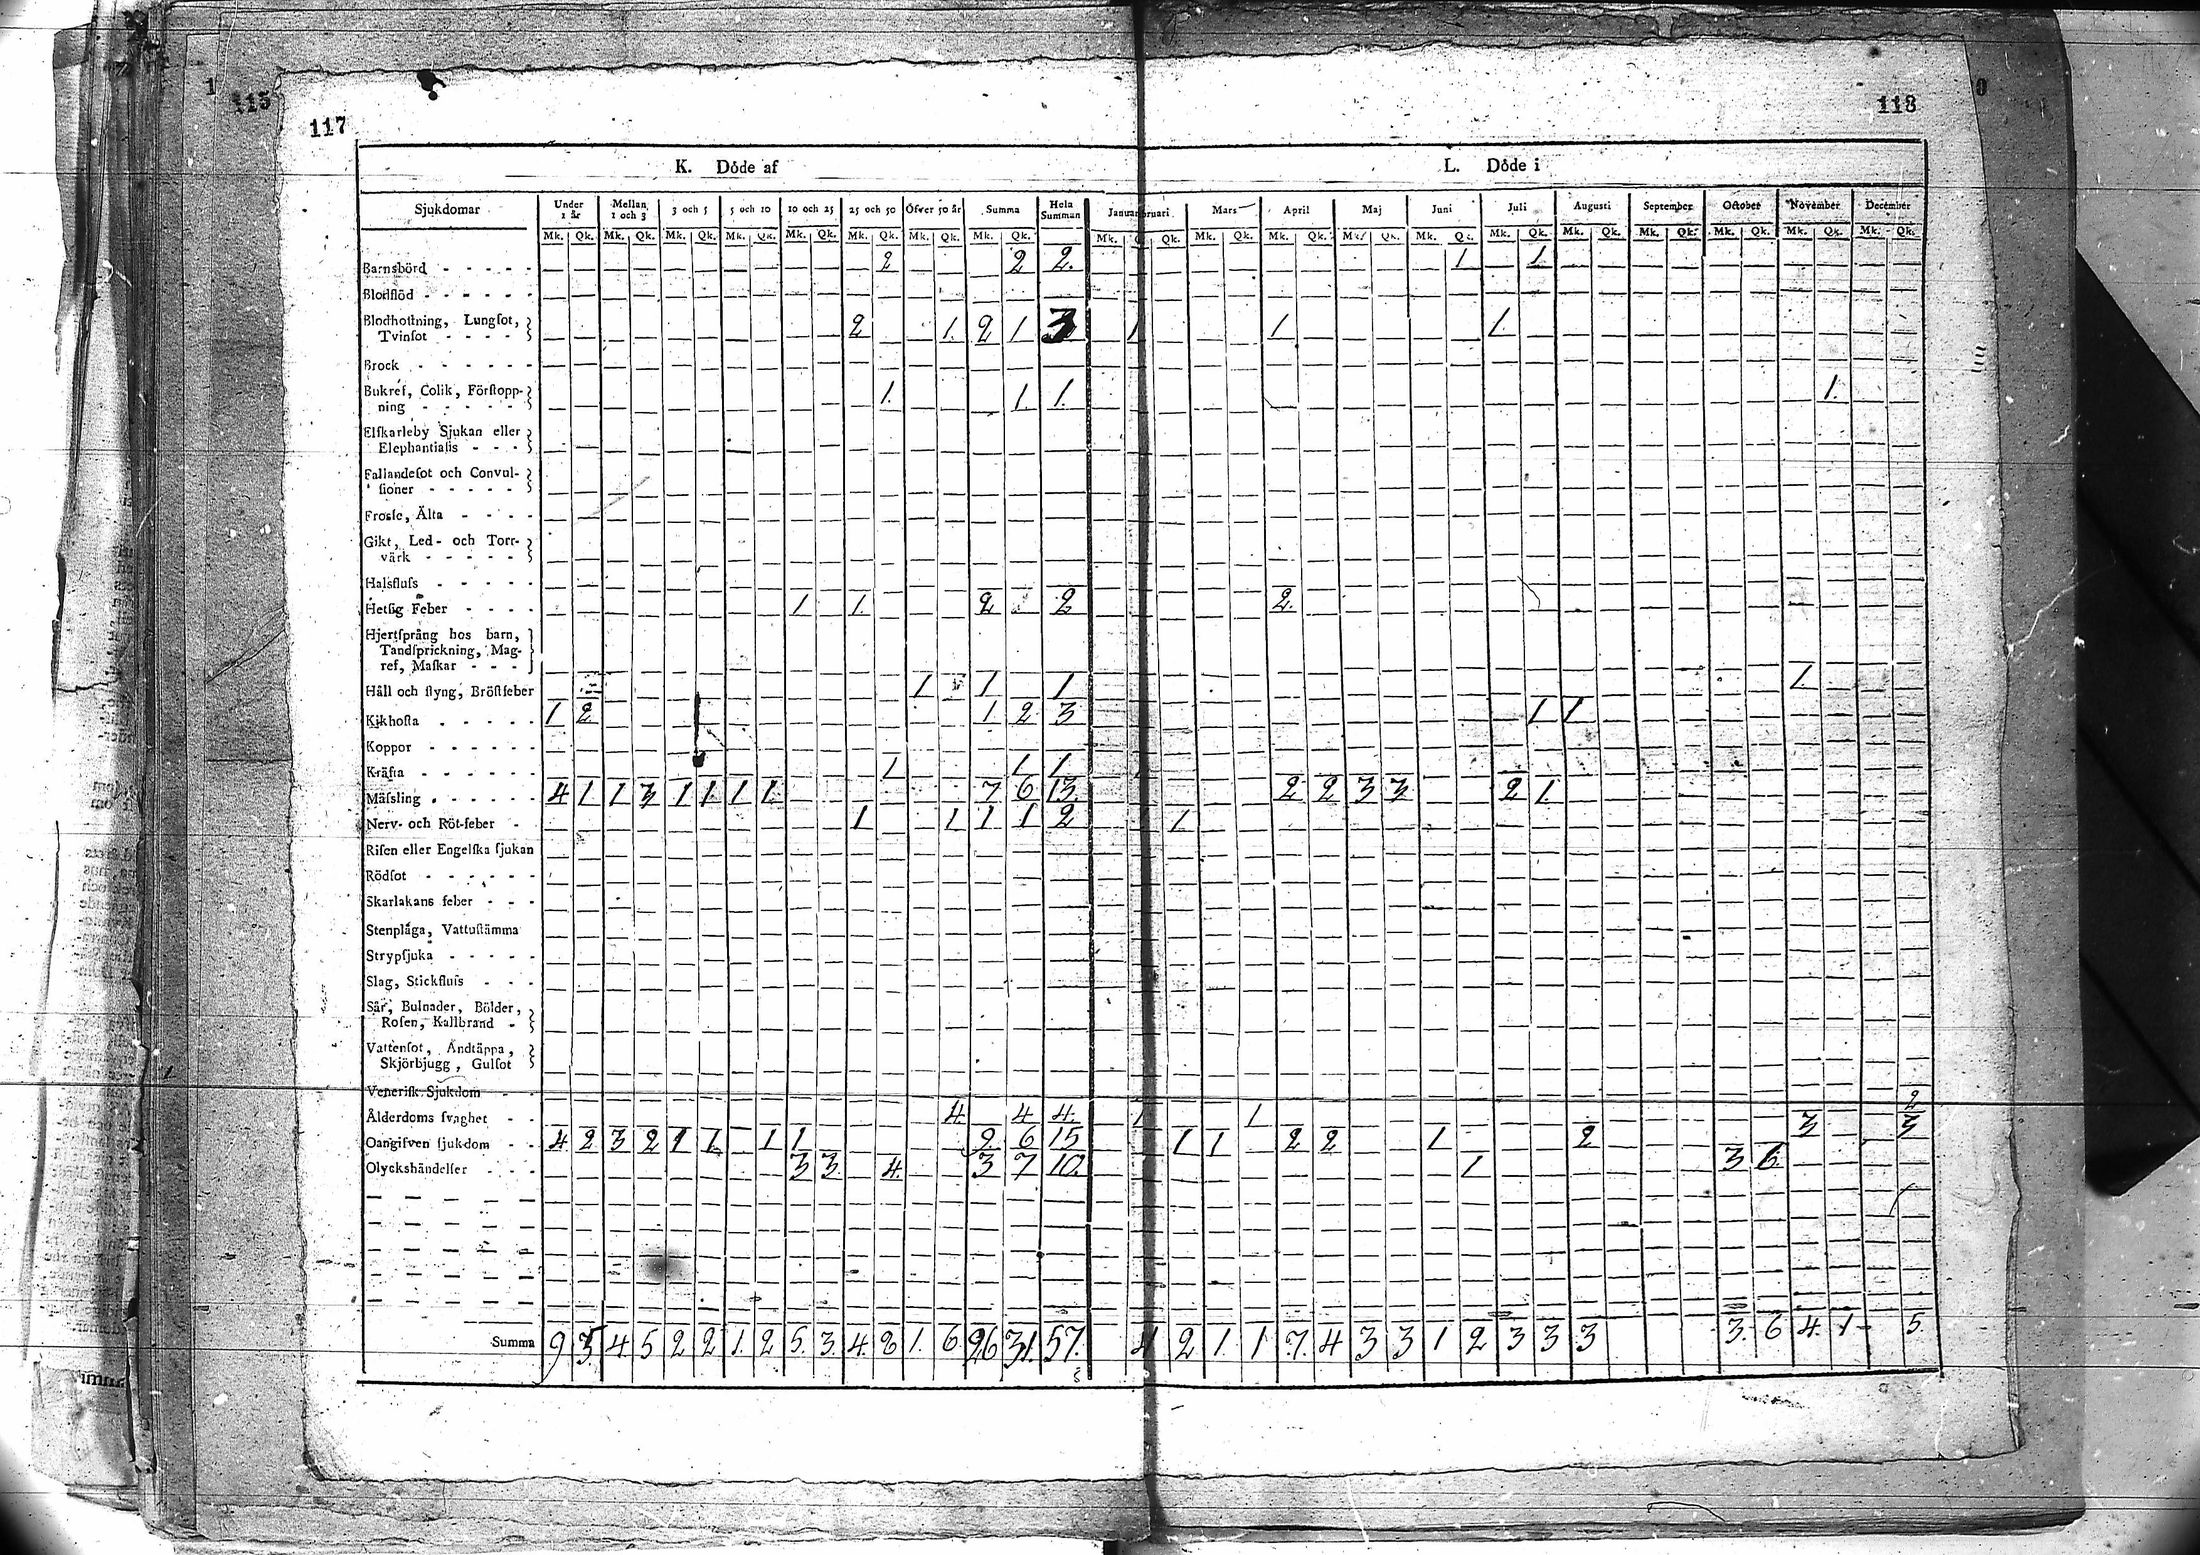 115
117
118
K. Döde af
L. Döde i
Sjukdomar Under 1 år Mellan 1 och 3 3 och 5 5 och 10 10 och 25 25 och 50 Öfver 50 år Summa Hela Summan Januar bruari Mars April Maj Juni Juli Augusti September October November December
Mk. Qk. Mk. Qk. Mk. Qk. Mk. Qk. Mk. Qk. Mk. Qk. Mk. Qk. Mk. Qk. Mk. Qk. Mk. Qk. Mk. Qk. Mk. Qk. Mk. Qk. Mk. Qk. Mk. Qk. Mk. Qk. Mk. Qk. Mk. Qk. Mk. Qk.
Barnsbörd - - - - - 2 2 2. 1 1
Blodflöd - - - - - -
Blodhostning, Lungsot,
Tvinsot - - - - 2 1. 2 1 3 1 1 1.
Brock - - - - - -
Bukref, Colik, Förstopp-
ning - - - - - 1. 1. 1. 1.
Elfkarleby Sjukan eller
Elephantiasis - - -
Fallandesot och Convul-
sioner - - - - -
Frossa, Älta - - - -
Gikt, Led- och Torr-
värk - - - - -
Halsfluss - - - - -
Hetsig Feber - - - - 1 1. 2 2 2.
Hjertsprång hos barn,
Tandsprickning, Mag-
ref, Maskar - - -
Håll och styng, Bröstfeber 1 1 1 1.
Kikhosta - - - - - 1 2 1 2 3 1 1
Koppor - - - - - -
Kräfta - - - - - - 1 1 1
Mässling - - - - - - 4 1 1 3 1 1. 1 1. 7 6 13. 2 2 3 3 2 1.
Nerv- och Röt-feber - 1 1 1 1 2 1
Risen eller Engelska sjukan
Rödsot - - - - - -
Skarlakans feber - - -
Stenplåga, Vattustämma
Strypsjuka - - - - -
Slag, Stickfluss - - -
Sår, Bulnader, Bölder,
Rosen, Kallbrand -
Vattensot, Andtäppa,
Skjörbjugg, Gulsot
Venerisk Sjukdom - -
Ålderdoms svaghet - - 4. 4 4. 1 1 2
Oangifven sjukdom - - 4 2 3 2 1 1. 1 1 6 15 1 1 2 2 1 2 3 3
Olyckshändelser - - - 3 3. 4. 3 7 10. 1 3 6.
Summa 9 5. 4. 5 2 2 1. 2 5. 3. 4. 8 1. 6. 26 31. 57. 4 2 1. 1 7. 4 3 3 1 2 3 3 3 3. 6 4. 1 5.